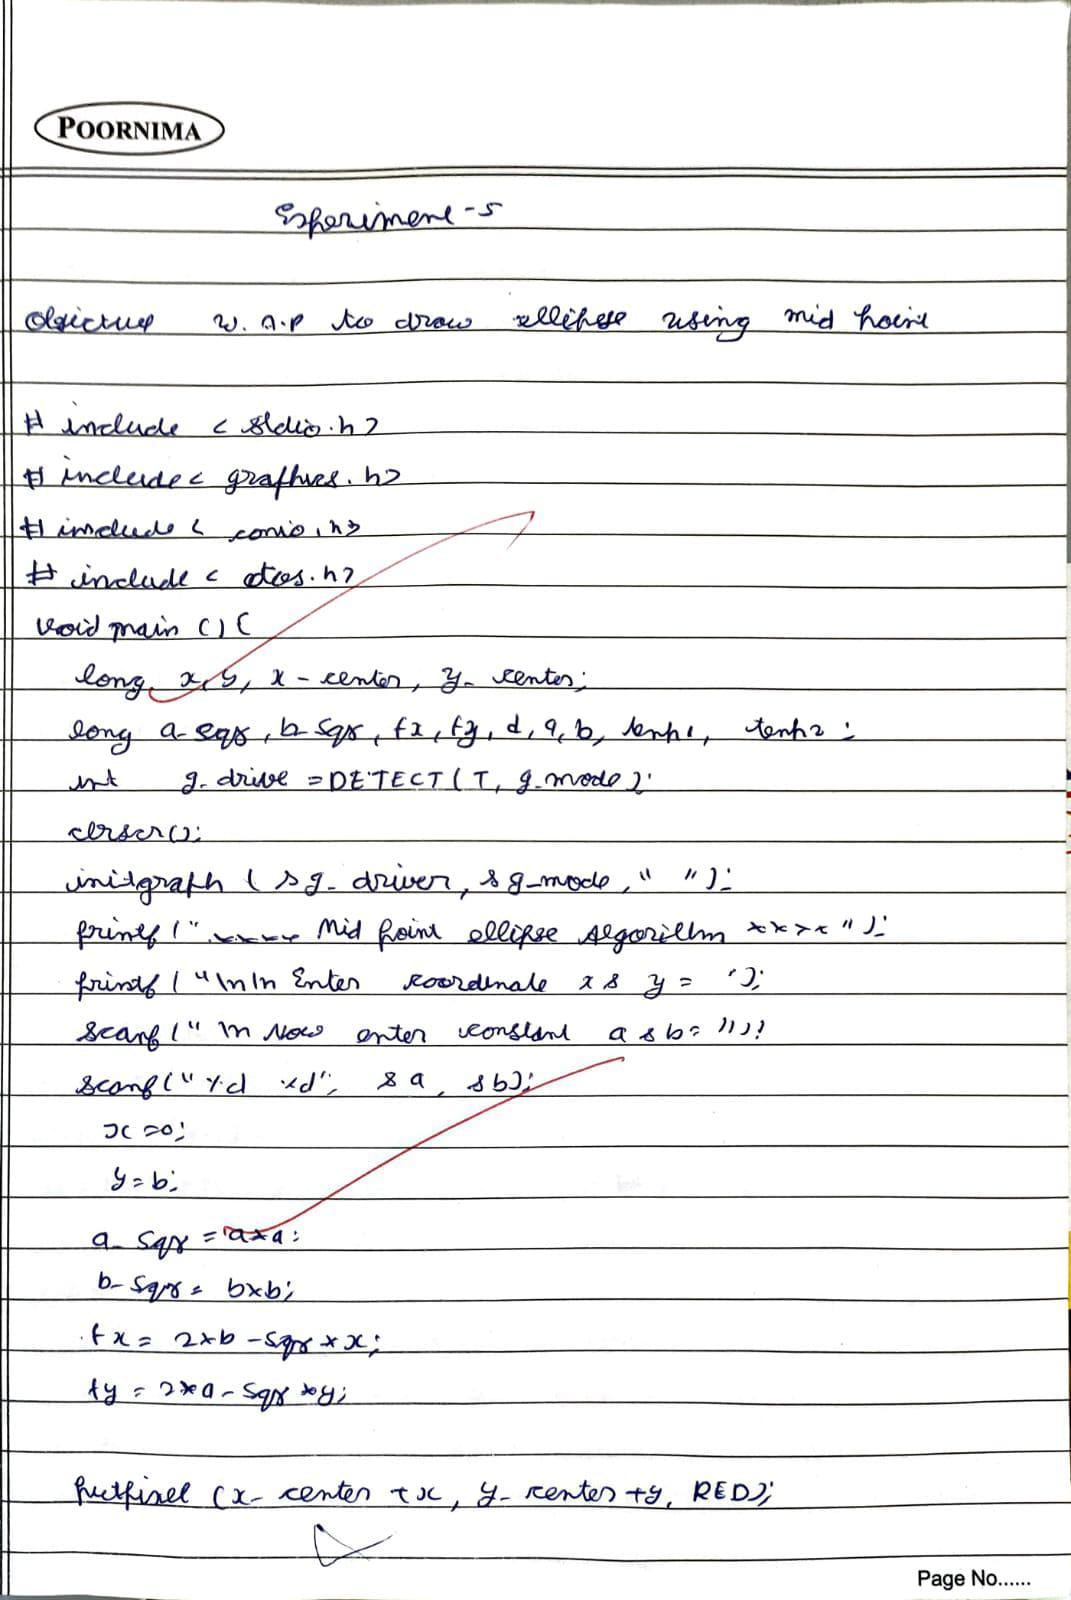 POORNIMA
Experiment-5
Objective W.A.P to draw ellipse using mid point
# include < stdio.h>
# include < graphics.h>
# include < conio.h>
# include < dos.h>
void main () {
long x, y, x-center, y-center;
long a-sqr, b-sqr, fx, fy, d, a, b, temp1, temp2;
int g-drive = DETECT (T, g-mode);
clrscr();
initgraph ( &g-driver, &g-mode, " ");
printf (" **** Mid point ellipse Algorithm **** ");
printf ( "\n\n Enter coordinate x & y = ");
scanf (" \n Now enter constant a & b = "));
scanf (" %d %d", &a, &b);
x = 0;
y = b;
a-sqr = a*a;
b-sqr = b*b;
fx = 2*b-sqr*x;
fy = 2*a-sqr*y;
putpixel (x-center +x, y-center +y, RED);
Page No......